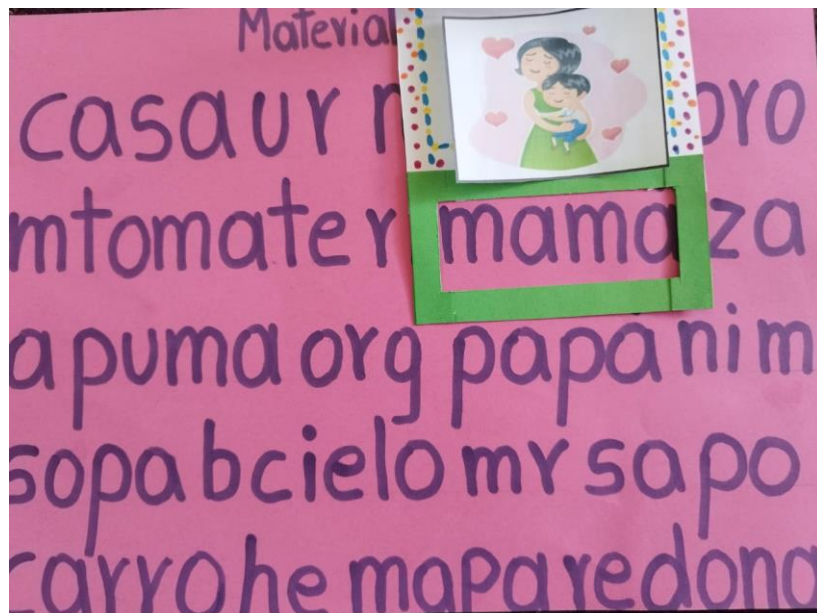 Material
casaur oro
mtomate r mama za
a puma org papá ni m
sopa b cielo mr sapo
carro he mapa redona